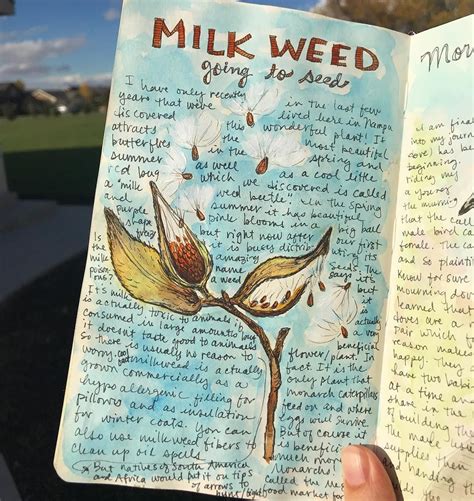 MILK WEED
going to seed
I have only recently in the last few
years that we've lived here in Nampa
discovered this wonderful plant! It
attracts the most beautiful
butterflies in the spring and
summer as well as a cool little
bug which we discovered is called
a "milk weed beetle". In the spring
and summer it has beautiful big ball
purple pink blooms in a
shape but right now after our first
frost it is busy distributing its
Is amazing seeds. The
the name says its
milkweed a weed but it
poisonous? is
It's milk actually
is actually toxic to animals if a very
consumed in large amounts but beneficial
it doesn't taste good to animals flower/plant. In
so there is usually no reason to fact. It is the
worry. Cool milkweed is actually only plant that
grown commercially as a monarch caterpillars
hypo allergenic filling for feed on and where
pillows and as insulation eggs will survive.
for winter coats. You can But of course it
also use milkweed fibers to is beneficial
clean up oil spills much more
But natives of South America Monarch!
and Africa would put it on tips called the
of arrows to
Mor
I am final
into my jour
has be
beginning.
riding my
a year of
the mourn
that the call
bird ca
female. The ca
and so plaintiv
Know for sure
Mourning do
learned that
doves are a
pair which
reason mak
happy. They
have two bab
at a time an
share in the
of building th